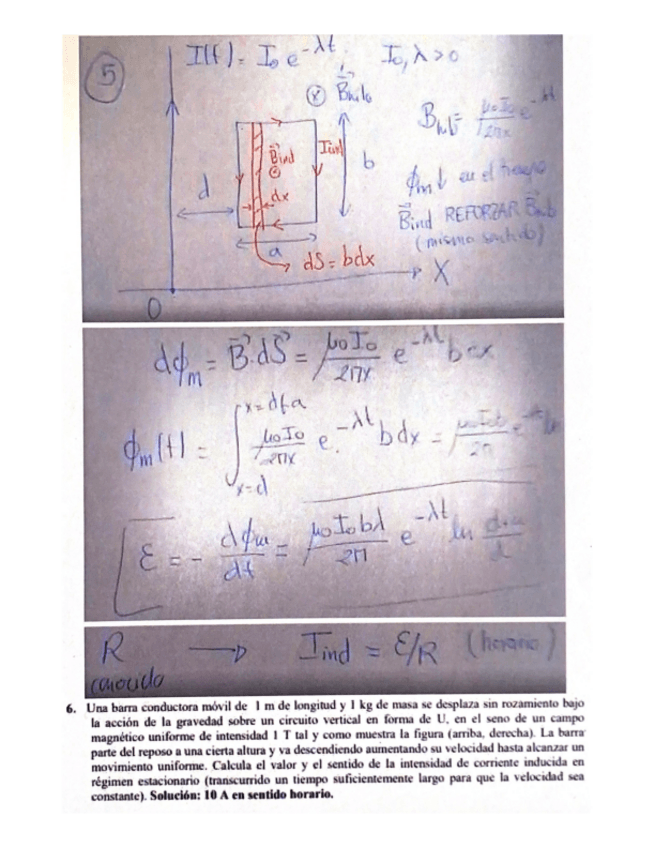 5
I(t) = I₀ e^-λt    I₀, λ > 0
B⃗hilo
Bhilo = μ₀I₀/2πx e^-λt
B⃗ind
Iind
b
d
dx
a
dS = bdx
ϕm ↓ en el tiempo
B⃗ind REFORZAR B⃗hilo
(mismo sentido)
X
O
dϕm = B⃗·dS⃗ = μ₀I₀/2πx e^-λt b dx
ϕm(t) = ∫ x=d x=d+a μ₀I₀/2πx e^-λt b dx =
ε = - dϕm/dt = μ₀I₀bλ/2π e^-λt ln
R → Iind = ε/R (horario)
conocida
6. Una barra conductora móvil de 1 m de longitud y 1 kg de masa se desplaza sin rozamiento bajo
la acción de la gravedad sobre un circuito vertical en forma de U, en el seno de un campo
magnético uniforme de intensidad 1 T tal y como muestra la figura (arriba, derecha). La barra
parte del reposo a una cierta altura y va descendiendo aumentando su velocidad hasta alcanzar un
movimiento uniforme. Calcula el valor y el sentido de la intensidad de corriente inducida en
régimen estacionario (transcurrido un tiempo suficientemente largo para que la velocidad sea
constante). Solución: 10 A en sentido horario.